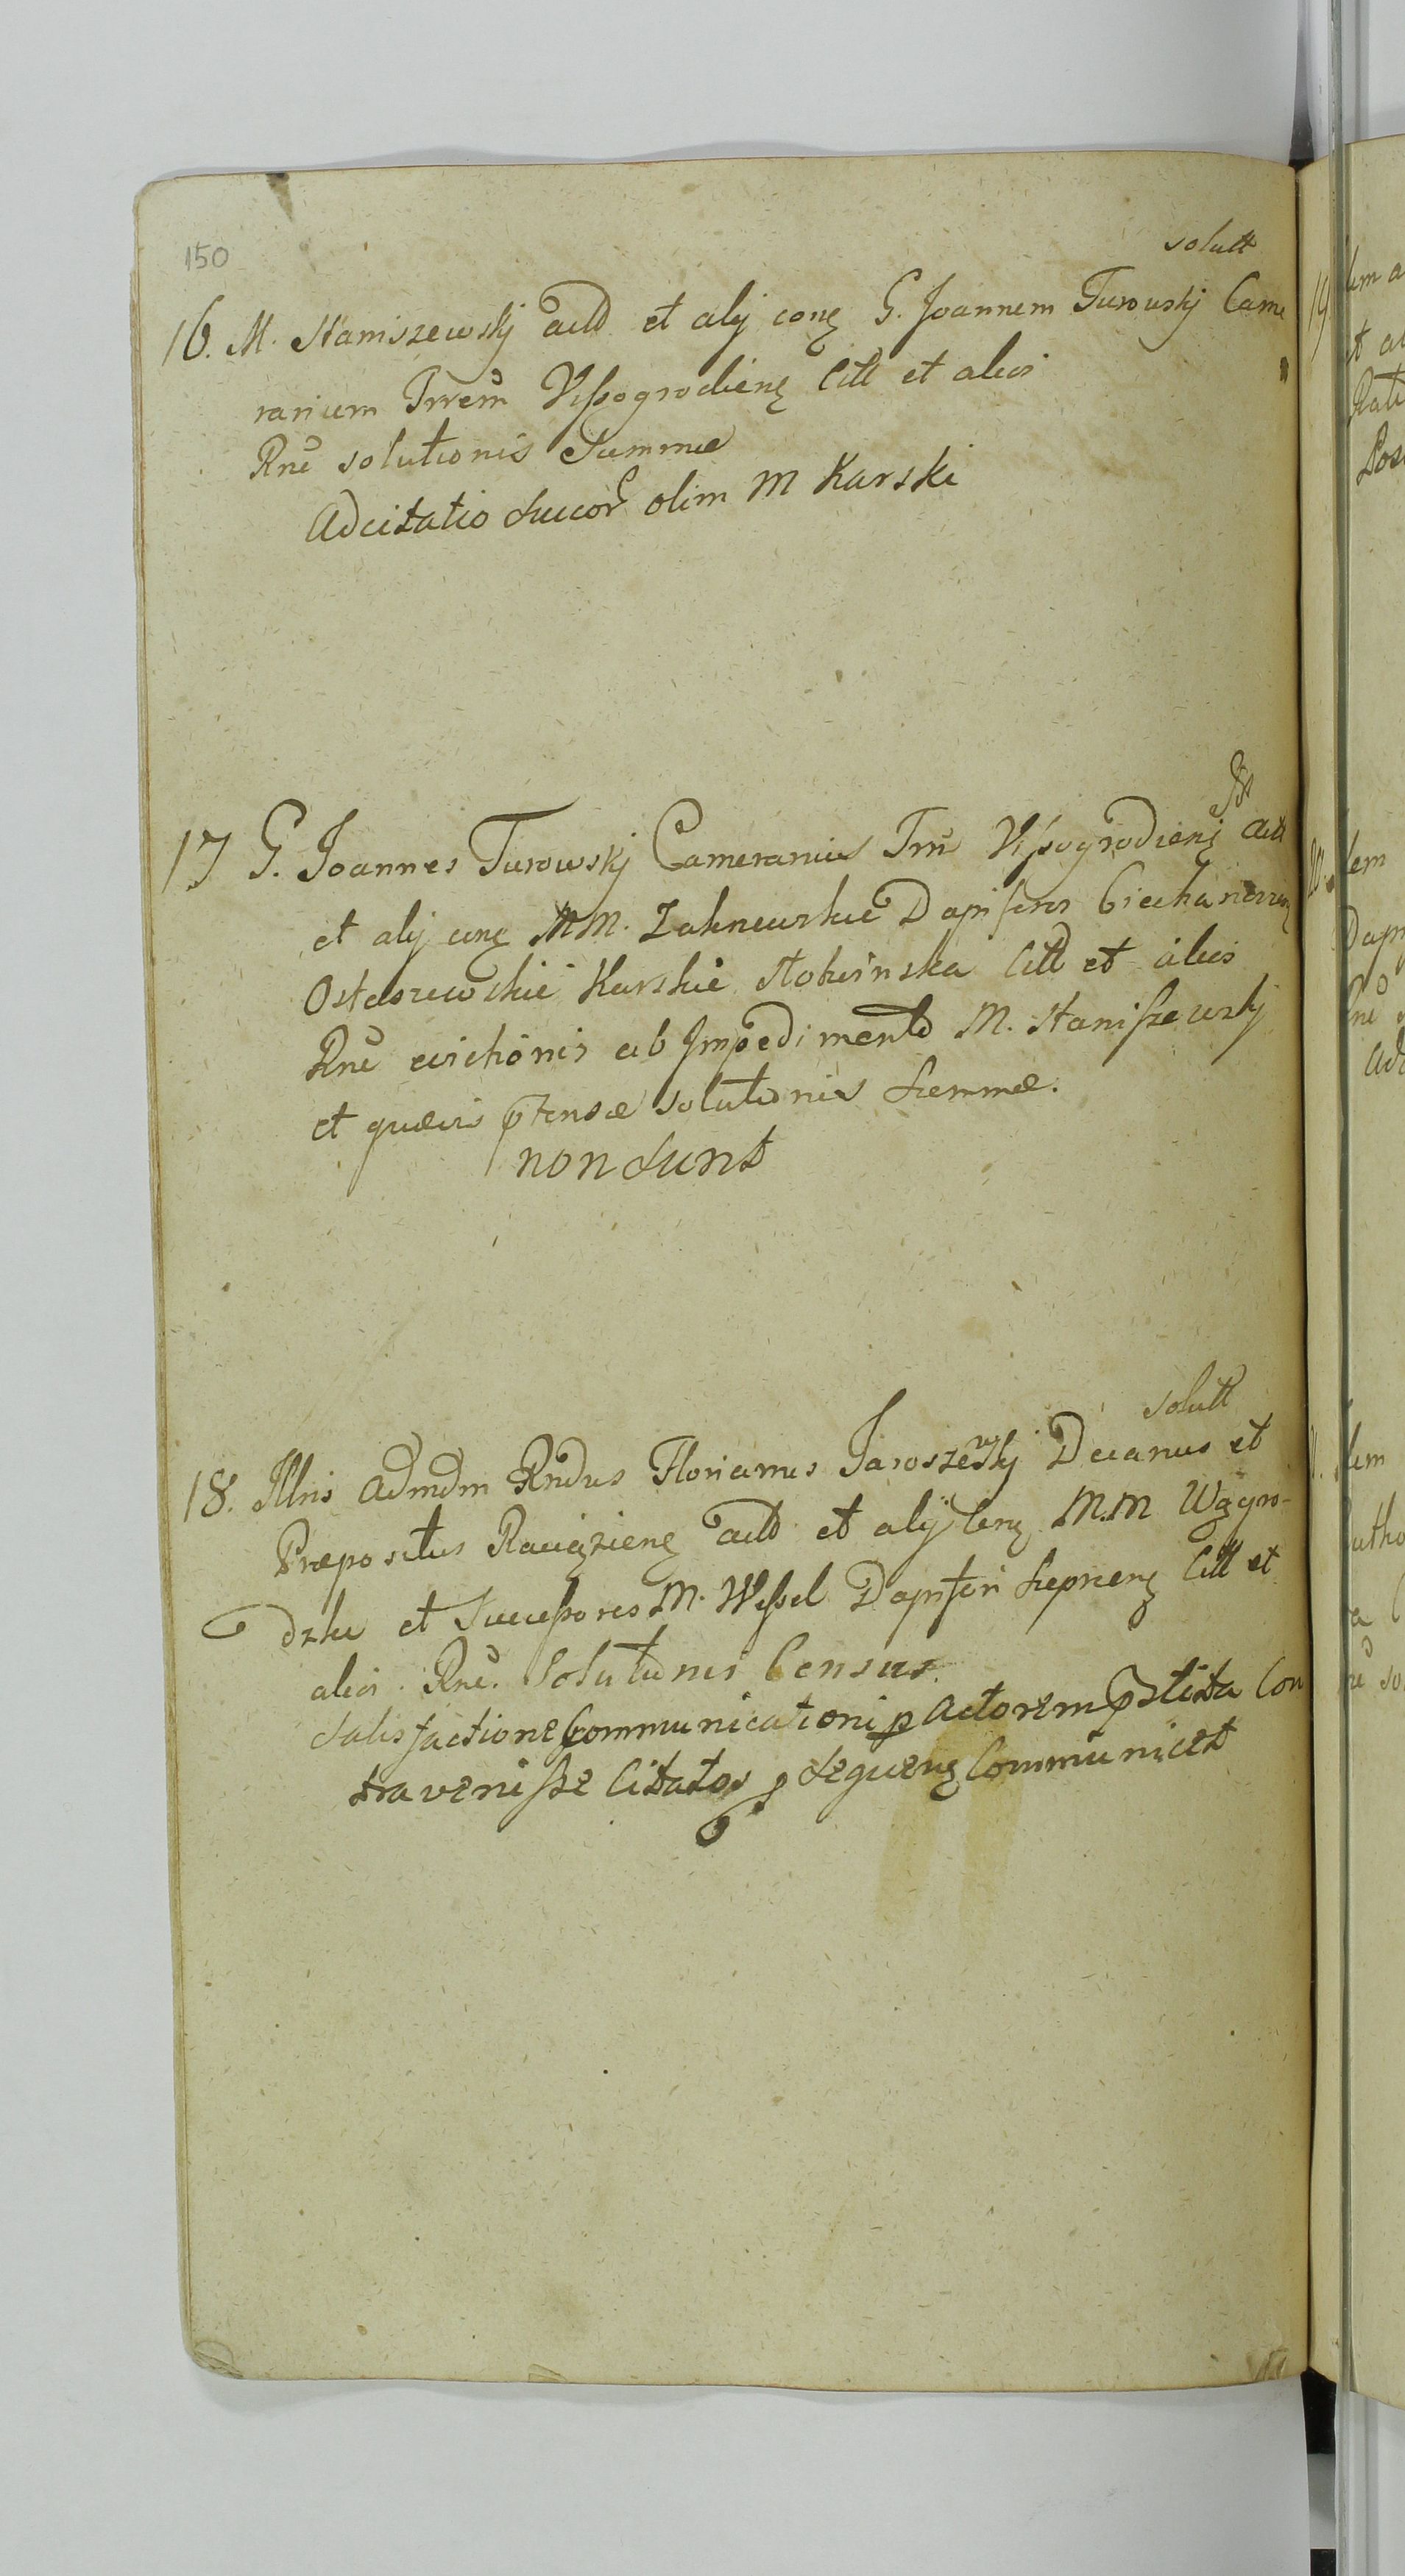 150
solutt
16. M. Staniszewskj actt et alij conę G. Joannem Turowskj Came
rarium Trrem Vissogrodienę Citt et alios
Rne solutionis Summæ
Adcitatio Succor olim M Karski
17 G. Joannes Turowskj Cameranius Trrę Vissogrodienę actt
et alij conę MM. Dapiferos Ciechanovien
Ostaszewskie Karskie Citt et alios
Rne evictionis ab Impedimento M. Staniszewskj
et quævis ptensæ solutionis Summæ.
non sunt
solutt
18. Illris Admdm Rndus Florianus Jaroszewskj Decanus et
Præpositus Raciązienę actt et alij Conę M.M Wągro-
dzkie et Successores M. Wessel Dapiferi Lepnenę Citt et
alios. Rne. Solutionis Census.
Satisfactione Communicationi p Actorem pstita Con
travenisse Citatos p Sequenę Communicet